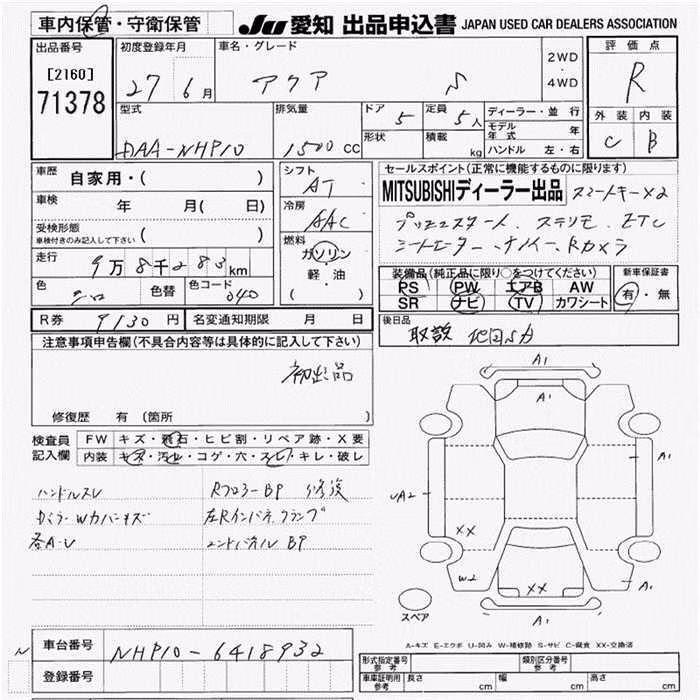 車内保管・守衛保管 JU 愛知 出品申込書 JAPAN USED CAR DEALERS ASSOCIATION
出品番号 [2160] 71378
初度登録年月 27年 6月
車名・グレード アクア S
2WD・4WD
評価点 R
外装 C 内装 B
型式 DAA-NHP10
排気量 1500 CC
ドア 5 形状
定員 5人 積載 kg
ディーラー・並行
モデル年式 年
ハンドル 左・右
車歴 自家用・( )
車検 年 月( 日)
受検形態 ( )
車検付きのみ記入して下さい
走行 9万8千283km
色 クロ 色替 色コード 040
シフト AT
冷房 AAC
燃料 ガソリン・軽・油 ( )
セールスポイント(正常に機能するものに限ります)
MITSUBISHIディーラー出品 スマートキー×2
プッシュスタート、ステリモ、ETC
シートヒーター、ナビ、Rカメラ
装備品(純正品に限り○をつけてください)
PS PW エアB AW
SR ナビ TV カワシート
新車保証書 有・無
R券 9130円 名変通知期限 月 日
後日品 取説 地図SD
注意事項申告欄(不具合内容等は具体的に記入して下さい)
初出品
修復歴 有 (箇所 )
検査員記入欄
FW キズ・飛石・ヒビ割・リペア跡・X要
内装 キズ・汚レ・コゲ・穴・スレ・キレ・破レ
ハンドルスレ
Rフロアー BP 修復
各A・U
エンドパネル BP
A1
A1
UA2
A1
XX
W2
XX
A1
A1
スペア
A-キズ E-エクボ U-凹み W-補修跡 S-サビ C-腐食 XX-交換済
N 車台番号 NHP10-6418932
登録番号
形式指定番号 参考 類別区分番号 参考
車庫証明用 参考 長さ cm 幅 cm 高さ cm